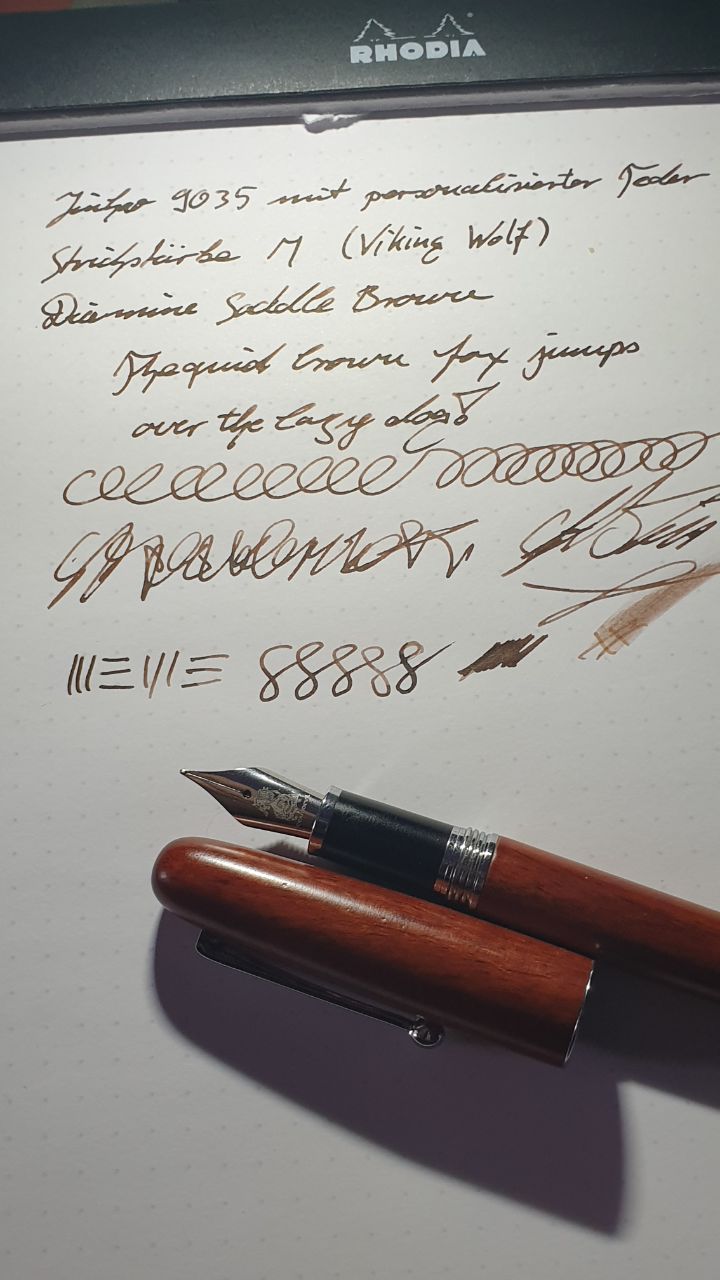 RHODIA
Jinhao 9035 mit personalisierter Feder
Strichstärke M (Viking Wolf)
Diamine Saddle Brown
The quick brown fox jumps
over the lazy dog!
88888